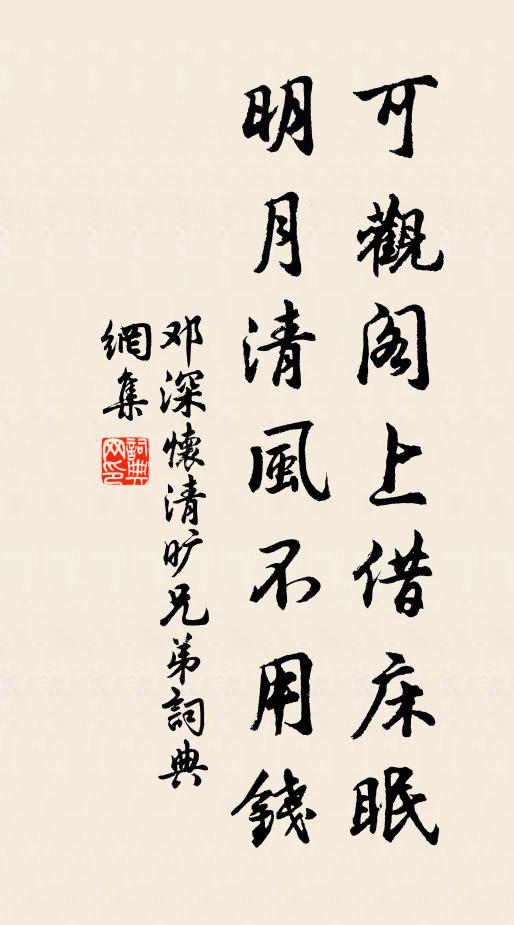 可觀阁上借床眠
明月清風不用錢
邓深懷清旷兄弟詞典
網集
詞典
网印